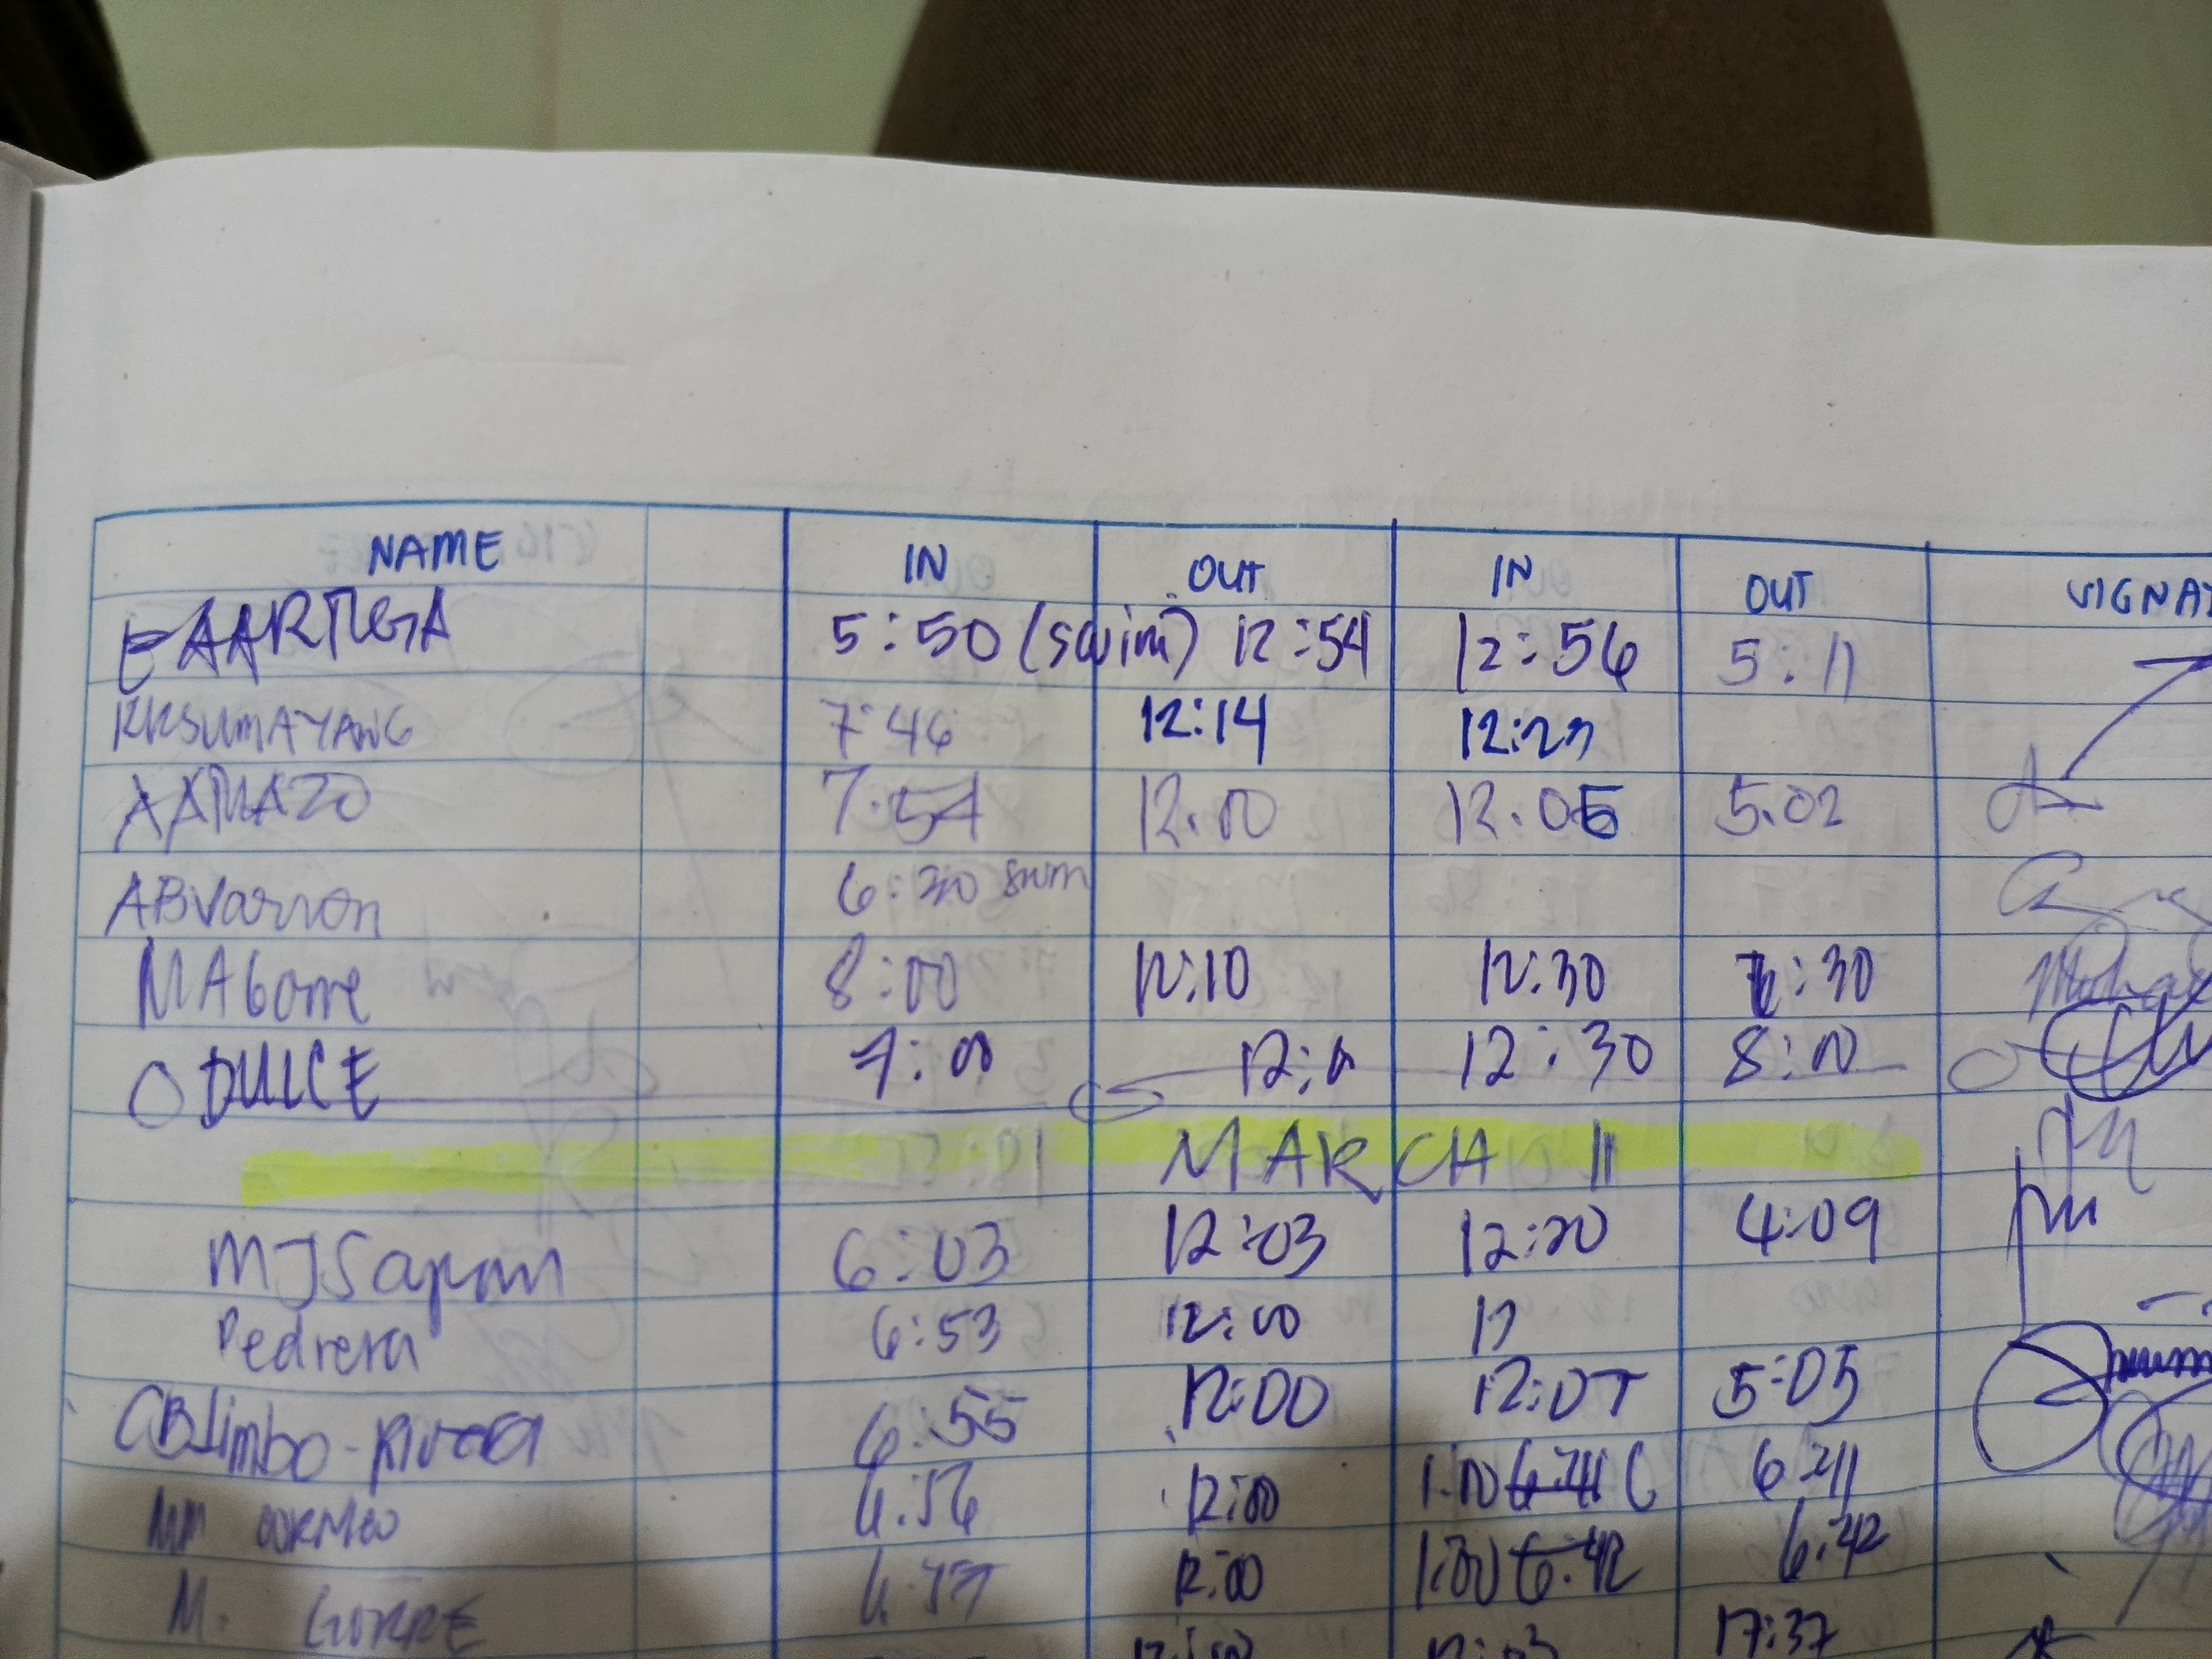 NAME IN OUT IN OUT SIGNAT
EAARTIGA 5:50 (swim) 12:54 12:56 5:11
RKSUMAYANG 7:46 12:14 12:27
AAMAZO 7:54 12:00 12:05 5:02
ABVarron 6:30 swim
MAGorre 8:00 12:10 12:30 :30
O DULCE 7:00 12:30 8:00
MARCH 11
MJSapon 6:03 12:03 12:20 4:09
Pedrera 6:53 12:00 12
CBLimbo-Rivera 6:55 12:00 12:07 5:05
MM 6:56 12:00 1:00 6:41 6:41
M. GORRE 6:57 12:00 1:00 6:42 6:42
17:37